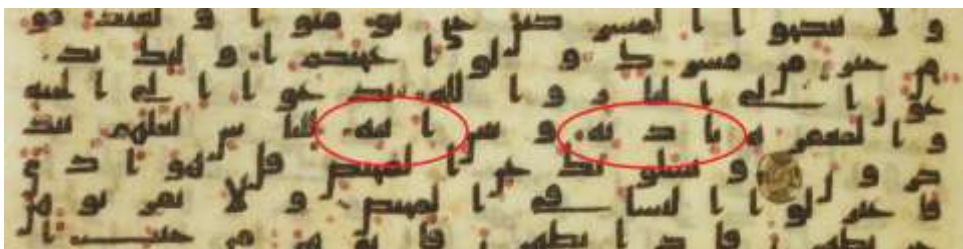 و لا تنكحوا ا لمشركين حتى يؤمنوا و لعبد مو
من خير من مشرك و لو ا عجبكم ا و لئك يد
عو ن ا لى ا لنار و ا لله يد عوا ا لى ا لجنة
و ا لمغفرة با ذ نه و يبين ا يته للنا س لعلهم يتذ
كر و ن و يسئلو نك عن ا لمحيض قل هو ا ذ ى
فا عتز لو ا ا لنسا فى ا لمحيض و لا تقر بو هن
حتى يطهر ن فا ذ ا تطهر ن فا تو هن من حيث ا